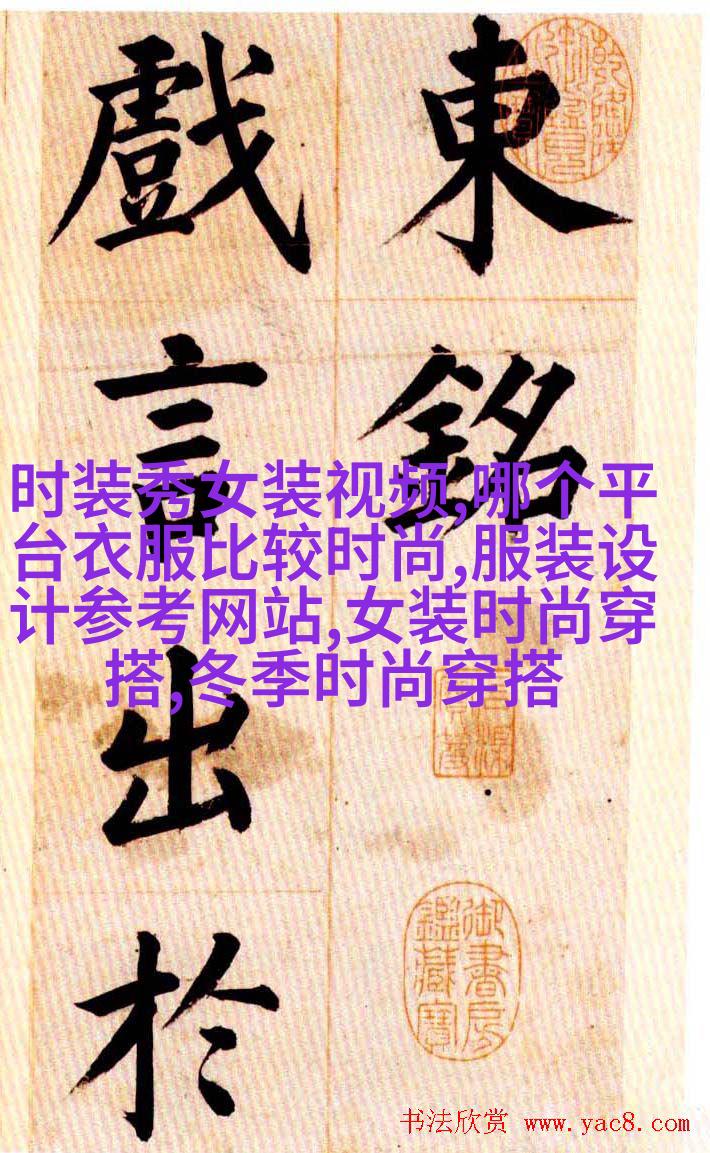 東銘
戲言出於
时装秀女装视频,哪个平
台衣服比较时尚,服装设
计参考网站,女装时尚穿
搭,冬季时尚穿搭
御書房
鑑藏寶
书法欣赏 www.yac8.com